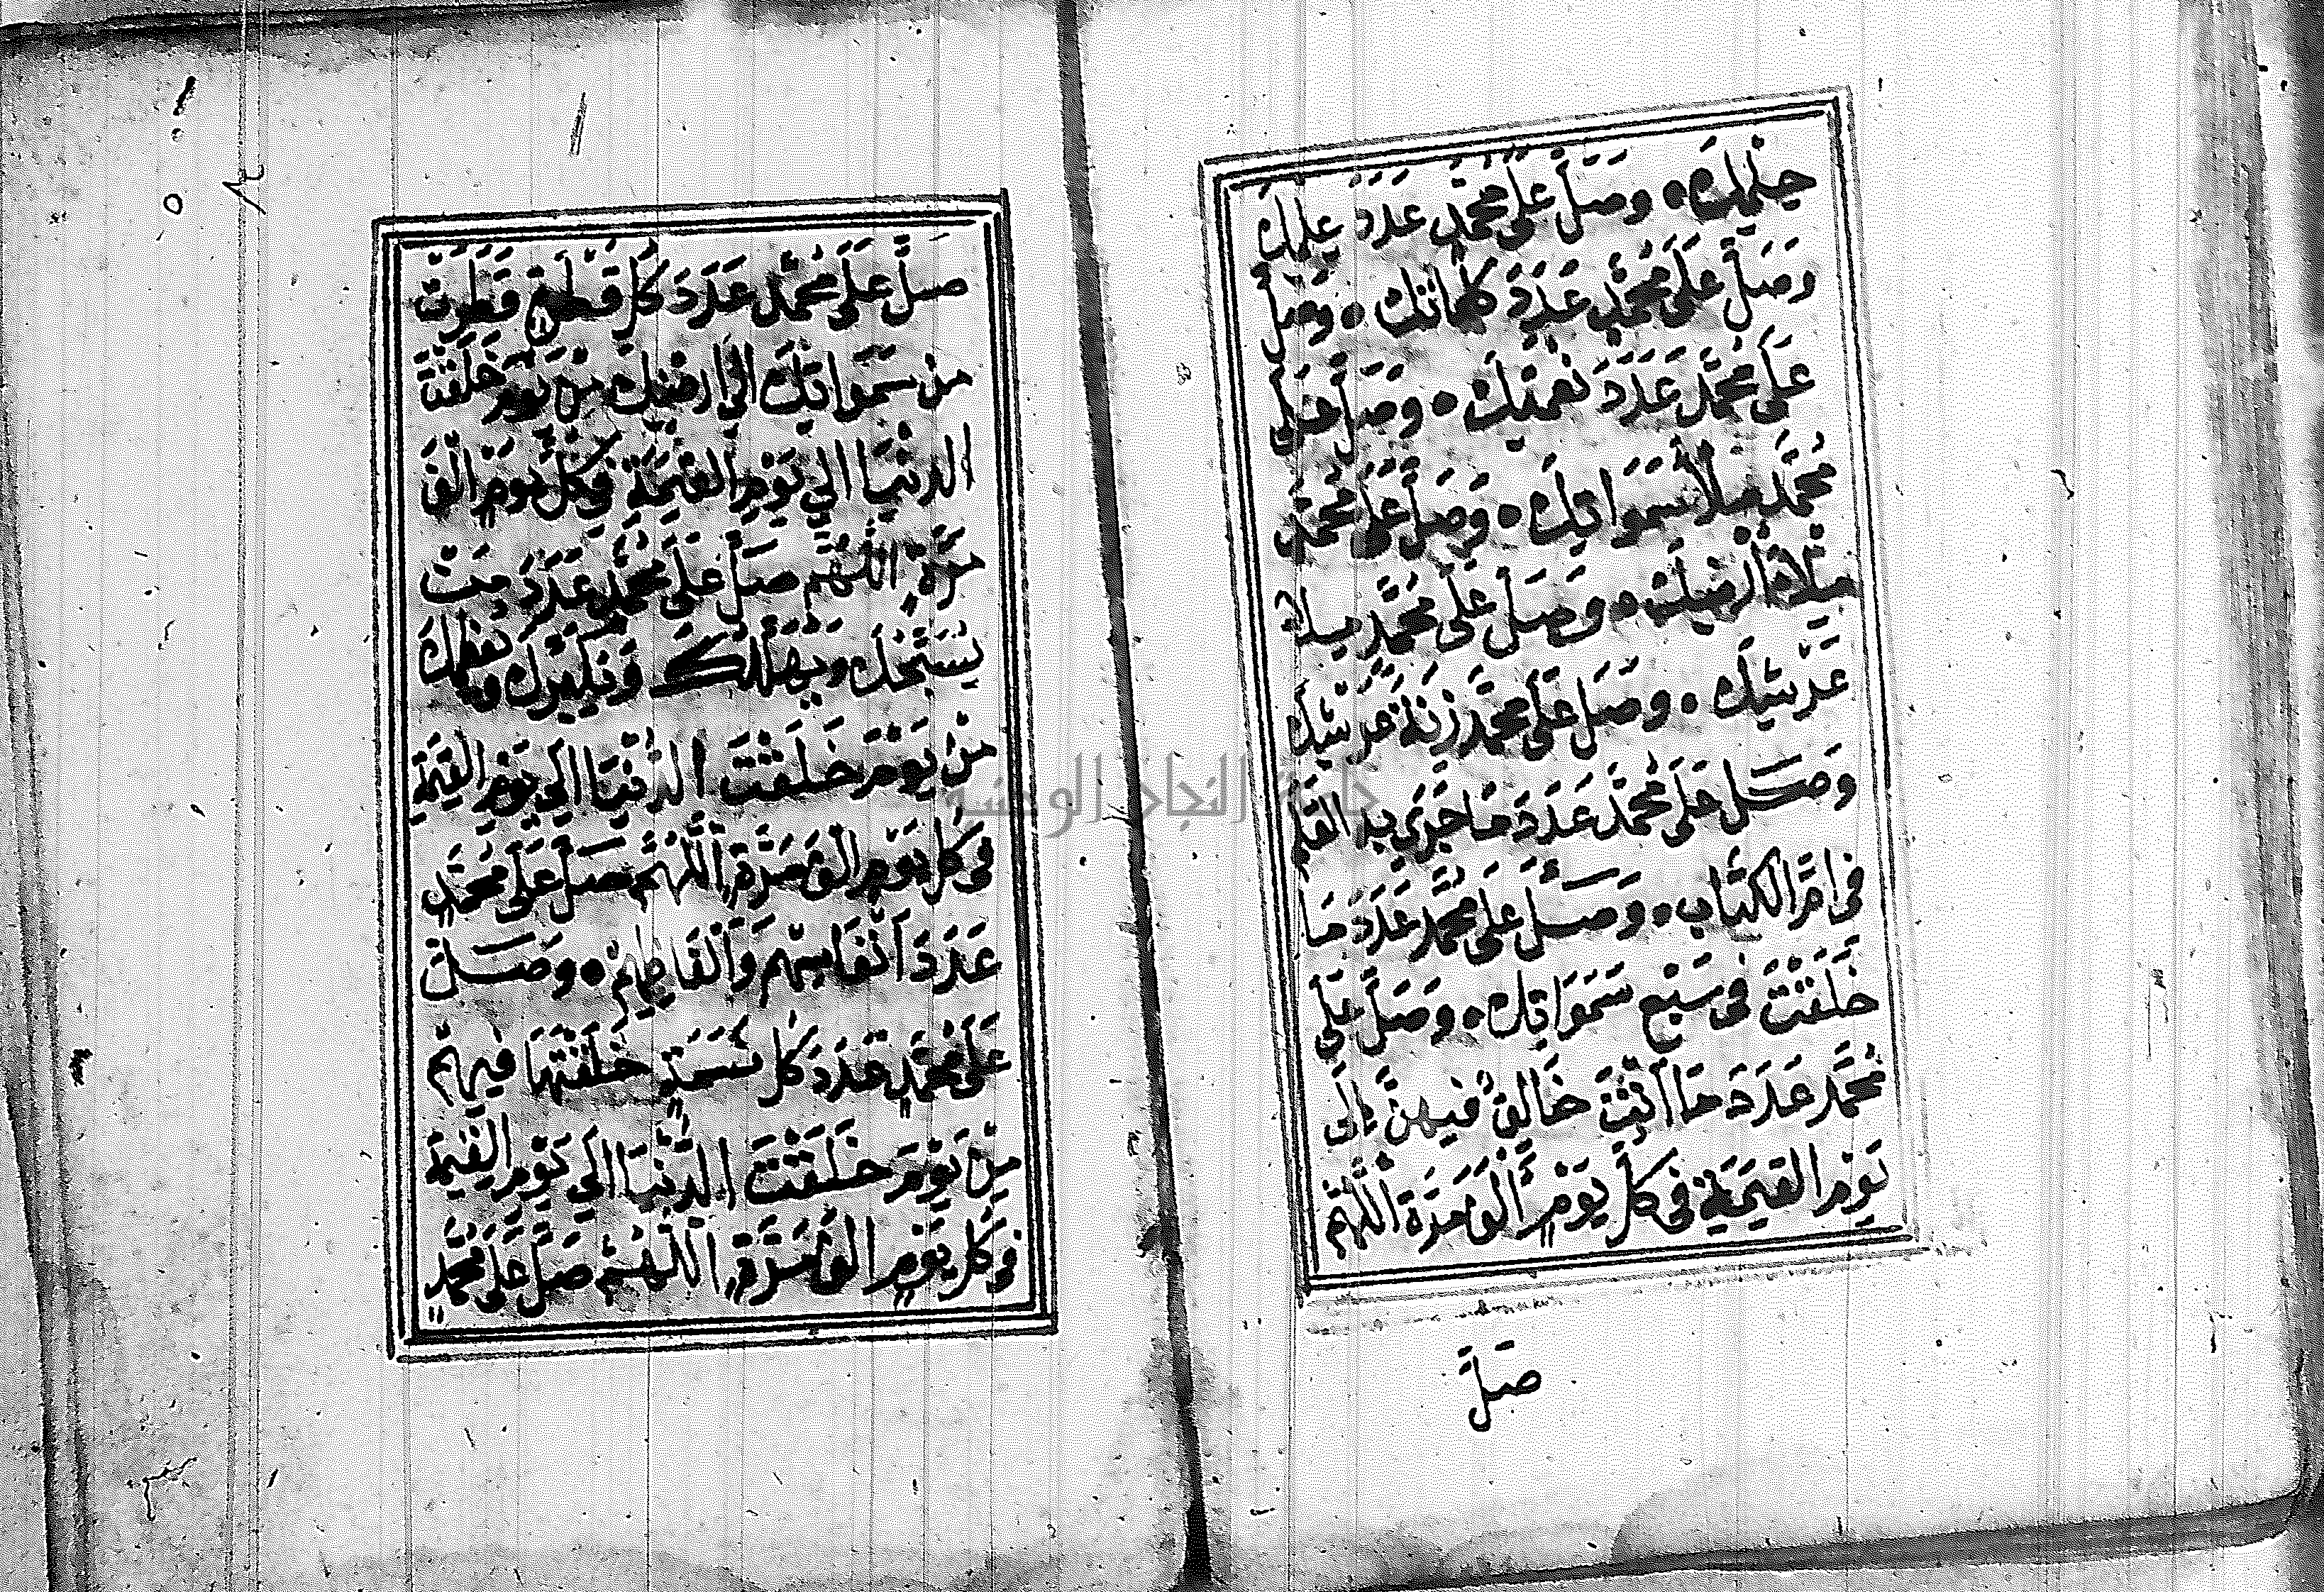 حِلْمِكَ وَصَلِّ عَلَى مُحَمَّدٍ عَدَدَ عِلْمِكَ
وَصَلِّ عَلَى مُحَمَّدٍ عَدَدَ كَلِمَاتِكَ وَصَلِّ
عَلَى مُحَمَّدٍ عَدَدَ نِعْمَتِكَ وَصَلِّ عَلَى
مُحَمَّدٍ مِلْأَ سَمَوَاتِكَ وَصَلِّ عَلَى مُحَمَّدٍ
مِلْأَ أَرْضِكَ وَصَلِّ عَلَى مُحَمَّدٍ مِلْأَ
عَرْشِكَ وَصَلِّ عَلَى مُحَمَّدٍ زِنَةَ عَرْشِكَ
وَصَلِّ عَلَى مُحَمَّدٍ عَدَدَ مَا جَرَى بِهِ الْقَلَمُ
فِي أُمِّ الْكِتَابِ وَصَلِّ عَلَى مُحَمَّدٍ عَدَدَ مَا
خَلَقْتَ فِي سَبْعِ سَمَوَاتِكَ وَصَلِّ عَلَى
مُحَمَّدٍ عَدَدَ مَا أَنْتَ خَالِقٌ فِيهِنَّ إِلَى
يَوْمِ الْقِيَمَةِ فِي كُلِّ يَوْمٍ أَلْفَ مَرَّةٍ اللَّهُمَّ
صَلِّ
صَلِّ عَلَى مُحَمَّدٍ عَدَدَ كُلِّ قَطْرَةٍ قَطَرَتْ
مِنْ سَمَوَاتِكَ الَى ارْضِكَ مِنْ يَوْمِ خَلَقْتَ
الدُّنْيَا الَى يَوْمِ الْقِيَمَةِ فِي كُلِّ يَوْمٍ الْفَ
مَرَّةٍ اللَّهُمَّ صَلِّ عَلَى مُحَمَّدٍ عَدَدَ مَنْ
يُسَبِّحُكَ وَيُهَلِّلُكَ وَيُكَبِّرُكَ وَيُعَظِّمُكَ
مِنْ يَوْمِ خَلَقْتَ الدُّنْيَا الَى يَوْمِ الْقِيَمَةِ
فِي كُلِّ يَوْمٍ الْفَ مَرَّةٍ اللَّهُمَّ صَلِّ عَلَى مُحَمَّدٍ
عَدَدَ أَنْفَاسِهِمْ وَأَلْفَاظِهِمْ وَصَلِّ
عَلَى مُحَمَّدٍ عَدَدَ كُلِّ نَسَمَةٍ خَلَقْتَهَا فِيهِمْ
مِنْ يَوْمِ خَلَقْتَ الدُّنْيَا الَى يَوْمِ الْقِيَمَةِ
فِي كُلِّ يَوْمٍ الْفَ مَرَّةٍ اللَّهُمَّ صَلِّ عَلَى مُحَمَّدٍ